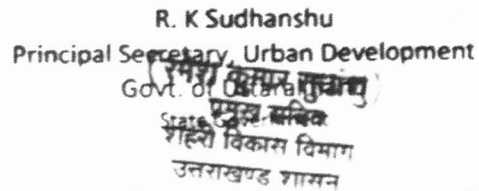 R. K Sudhanshu
Principal Secretary, Urban Development
(रमेश कुमार सुधांशु)
Govt. of Uttarakhand
प्रमुख सचिव
State
शहरी विकास विभाग
उत्तराखण्ड शासन